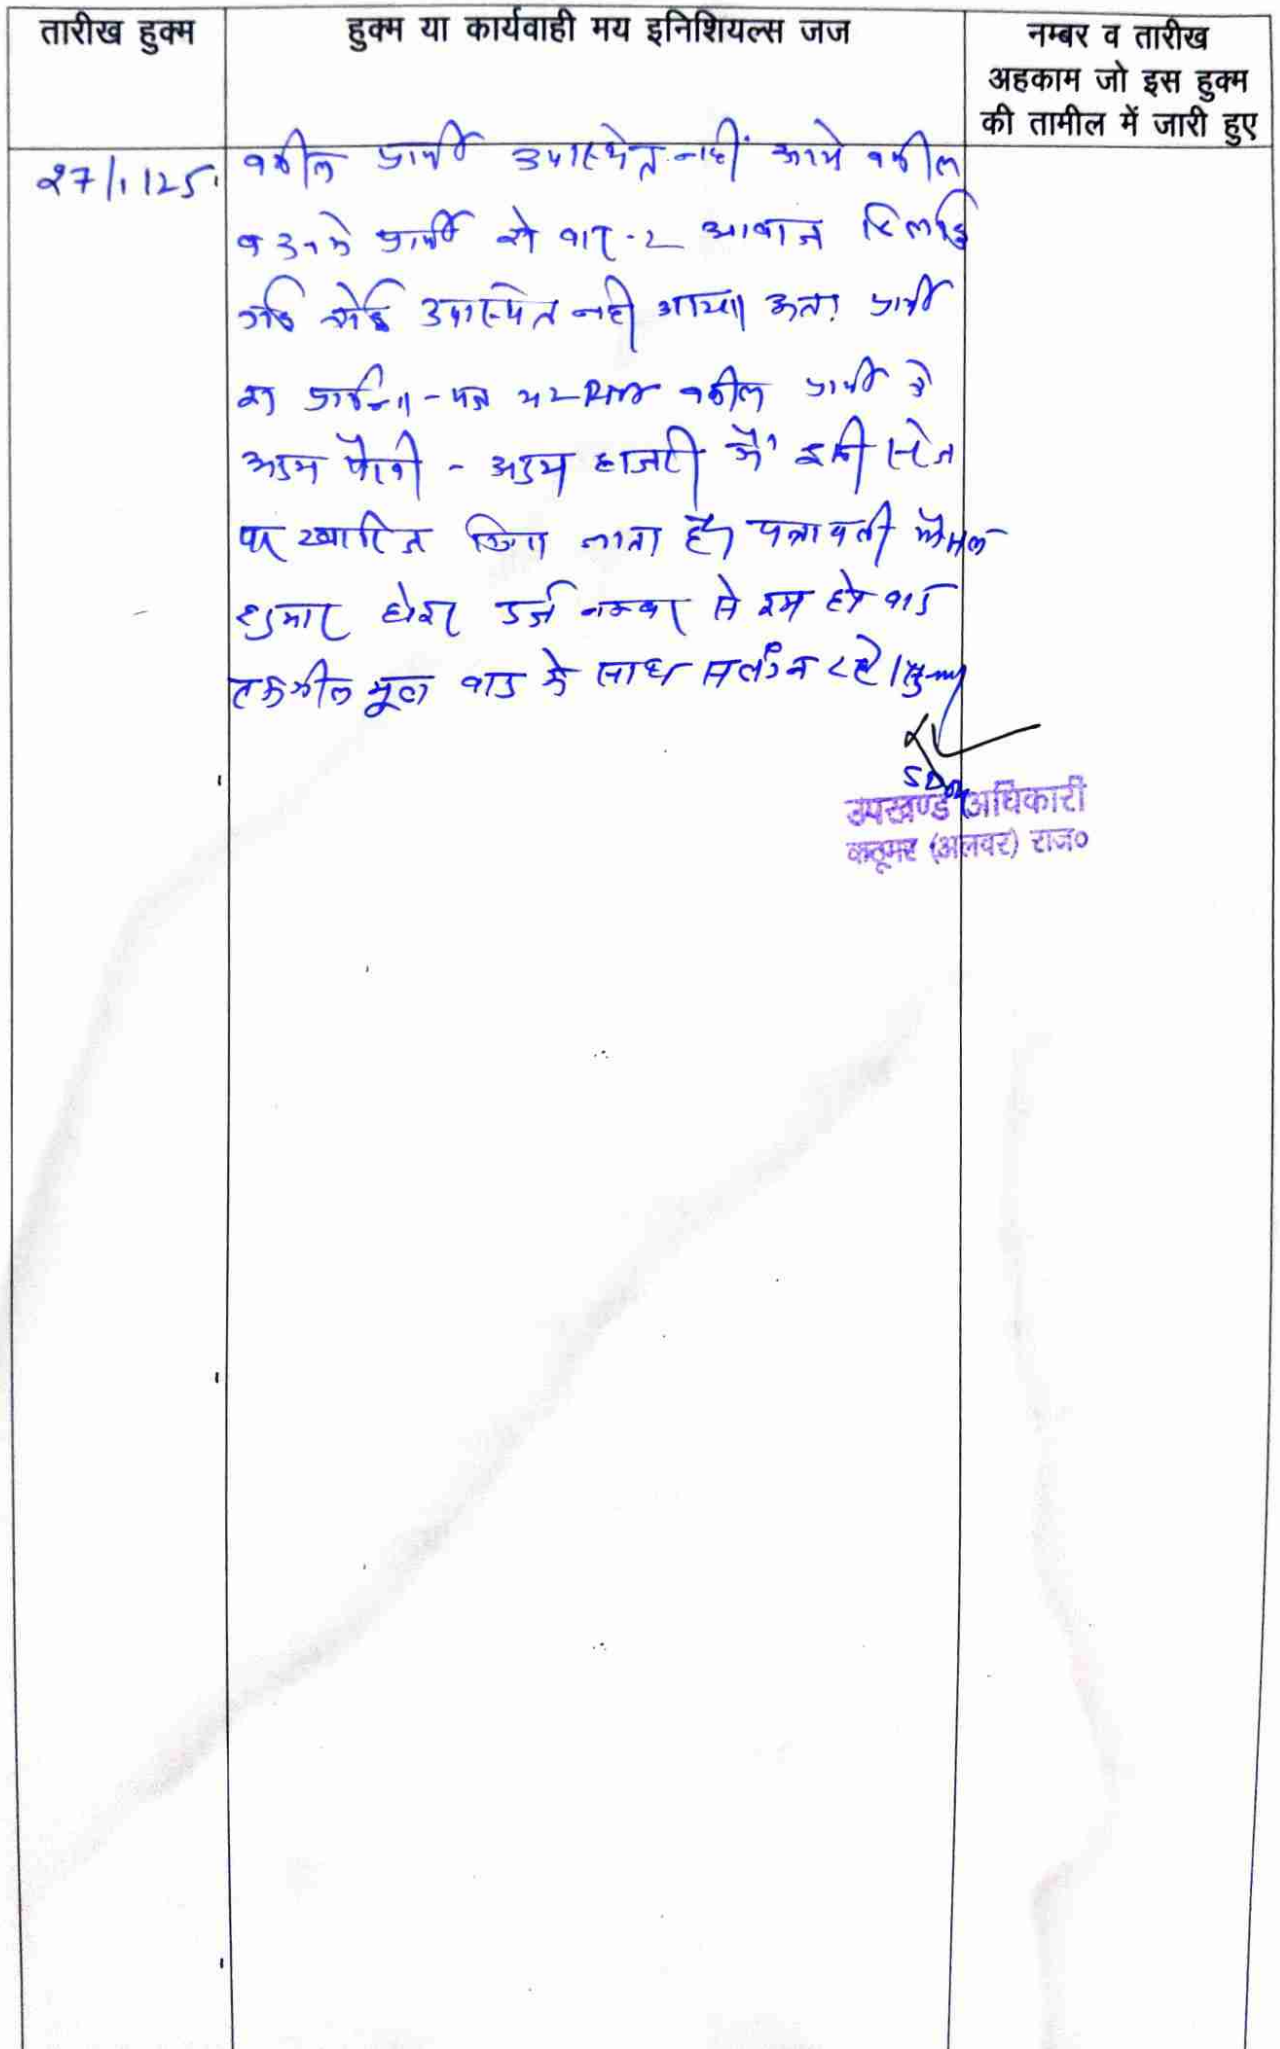 तारीख हुक्म
हुक्म या कार्यवाही मय इनिशियल्स जज
नम्बर व तारीख
अहकाम जो इस हुक्म
की तामील में जारी हुए
27/1/25
वकील प्रार्थी उपस्थित नहीं आये वकील
व उनके प्रार्थी को बार-2 आवाज दिलाई
गई कोई उपस्थित नही आया। अतः प्रार्थी
का प्रार्थना-पत्र वकील प्रार्थी के
अदम पैरवी - अदम हाजरी में इसी स्टेज
पर खारिज किया जाता है। पत्रावली फैसल
शुमार होकर दर्ज नम्बर से कम हो बाद
तकमील मूल वाद के साथ संलग्न रहे।
SDO
उपखण्ड अधिकारी
कठूमर (अलवर) राज०